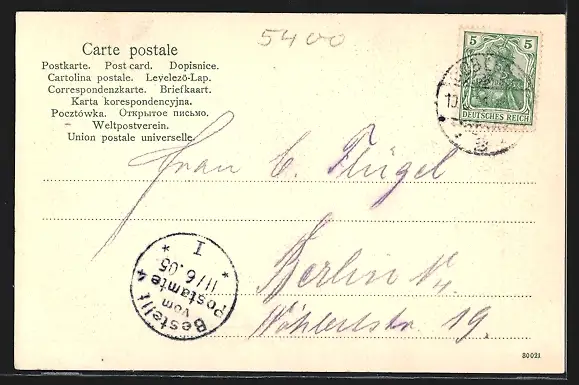 5400
Carte postale
Postkarte. Post card. Dopisnice.
Cartolina postale. Levelező-Lap.
Correspondenzkarte. Briefkaart.
Karta korespondencyjna.
Pocztówka. Открытое письмо.
Weltpostverein.
Union postale universelle.
5 5
DEUTSCHES REICH
Frau C. Flügel
Berlin N.
Wöhlertstr. 19.
Bestellt
vom
Postamte 4
11/6.05.
* I *
80021